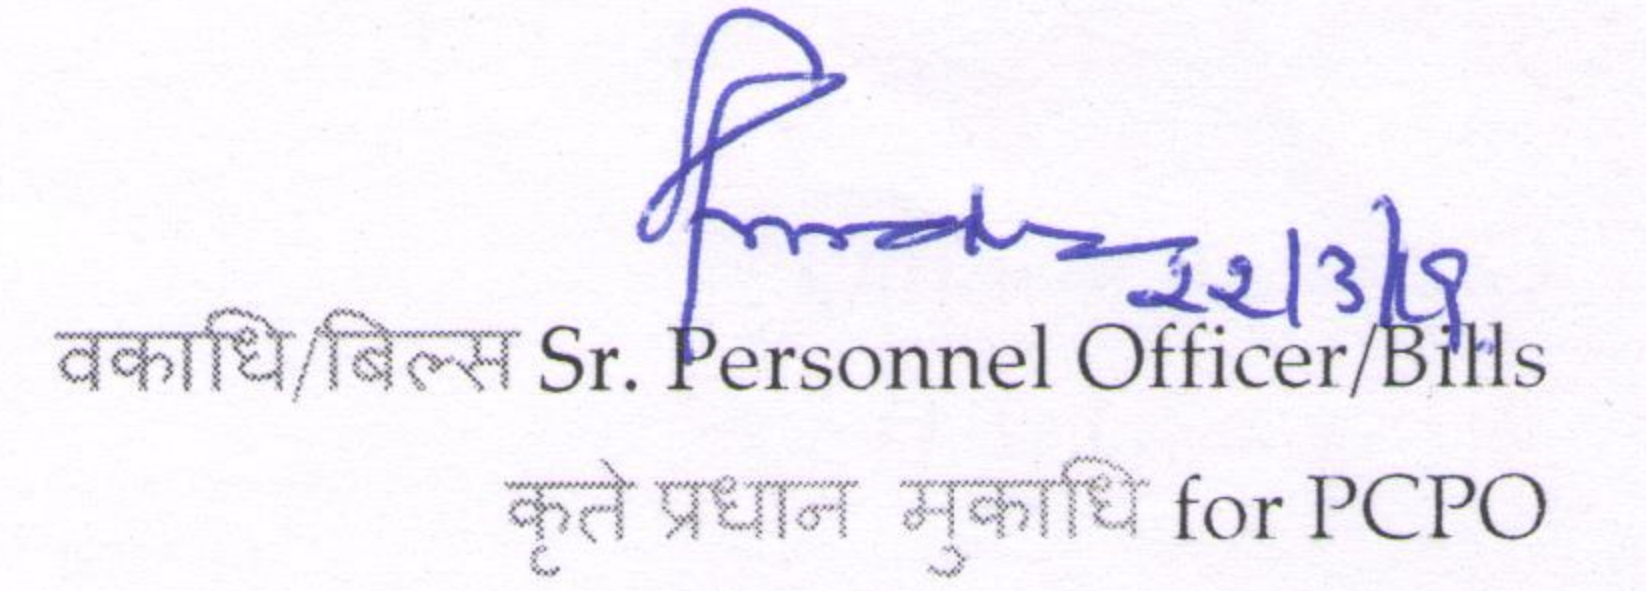 22/3/19
वकाधि/बिल्स Sr. Personnel Officer/Bills
कृते प्रधान मुकाधि for PCPO